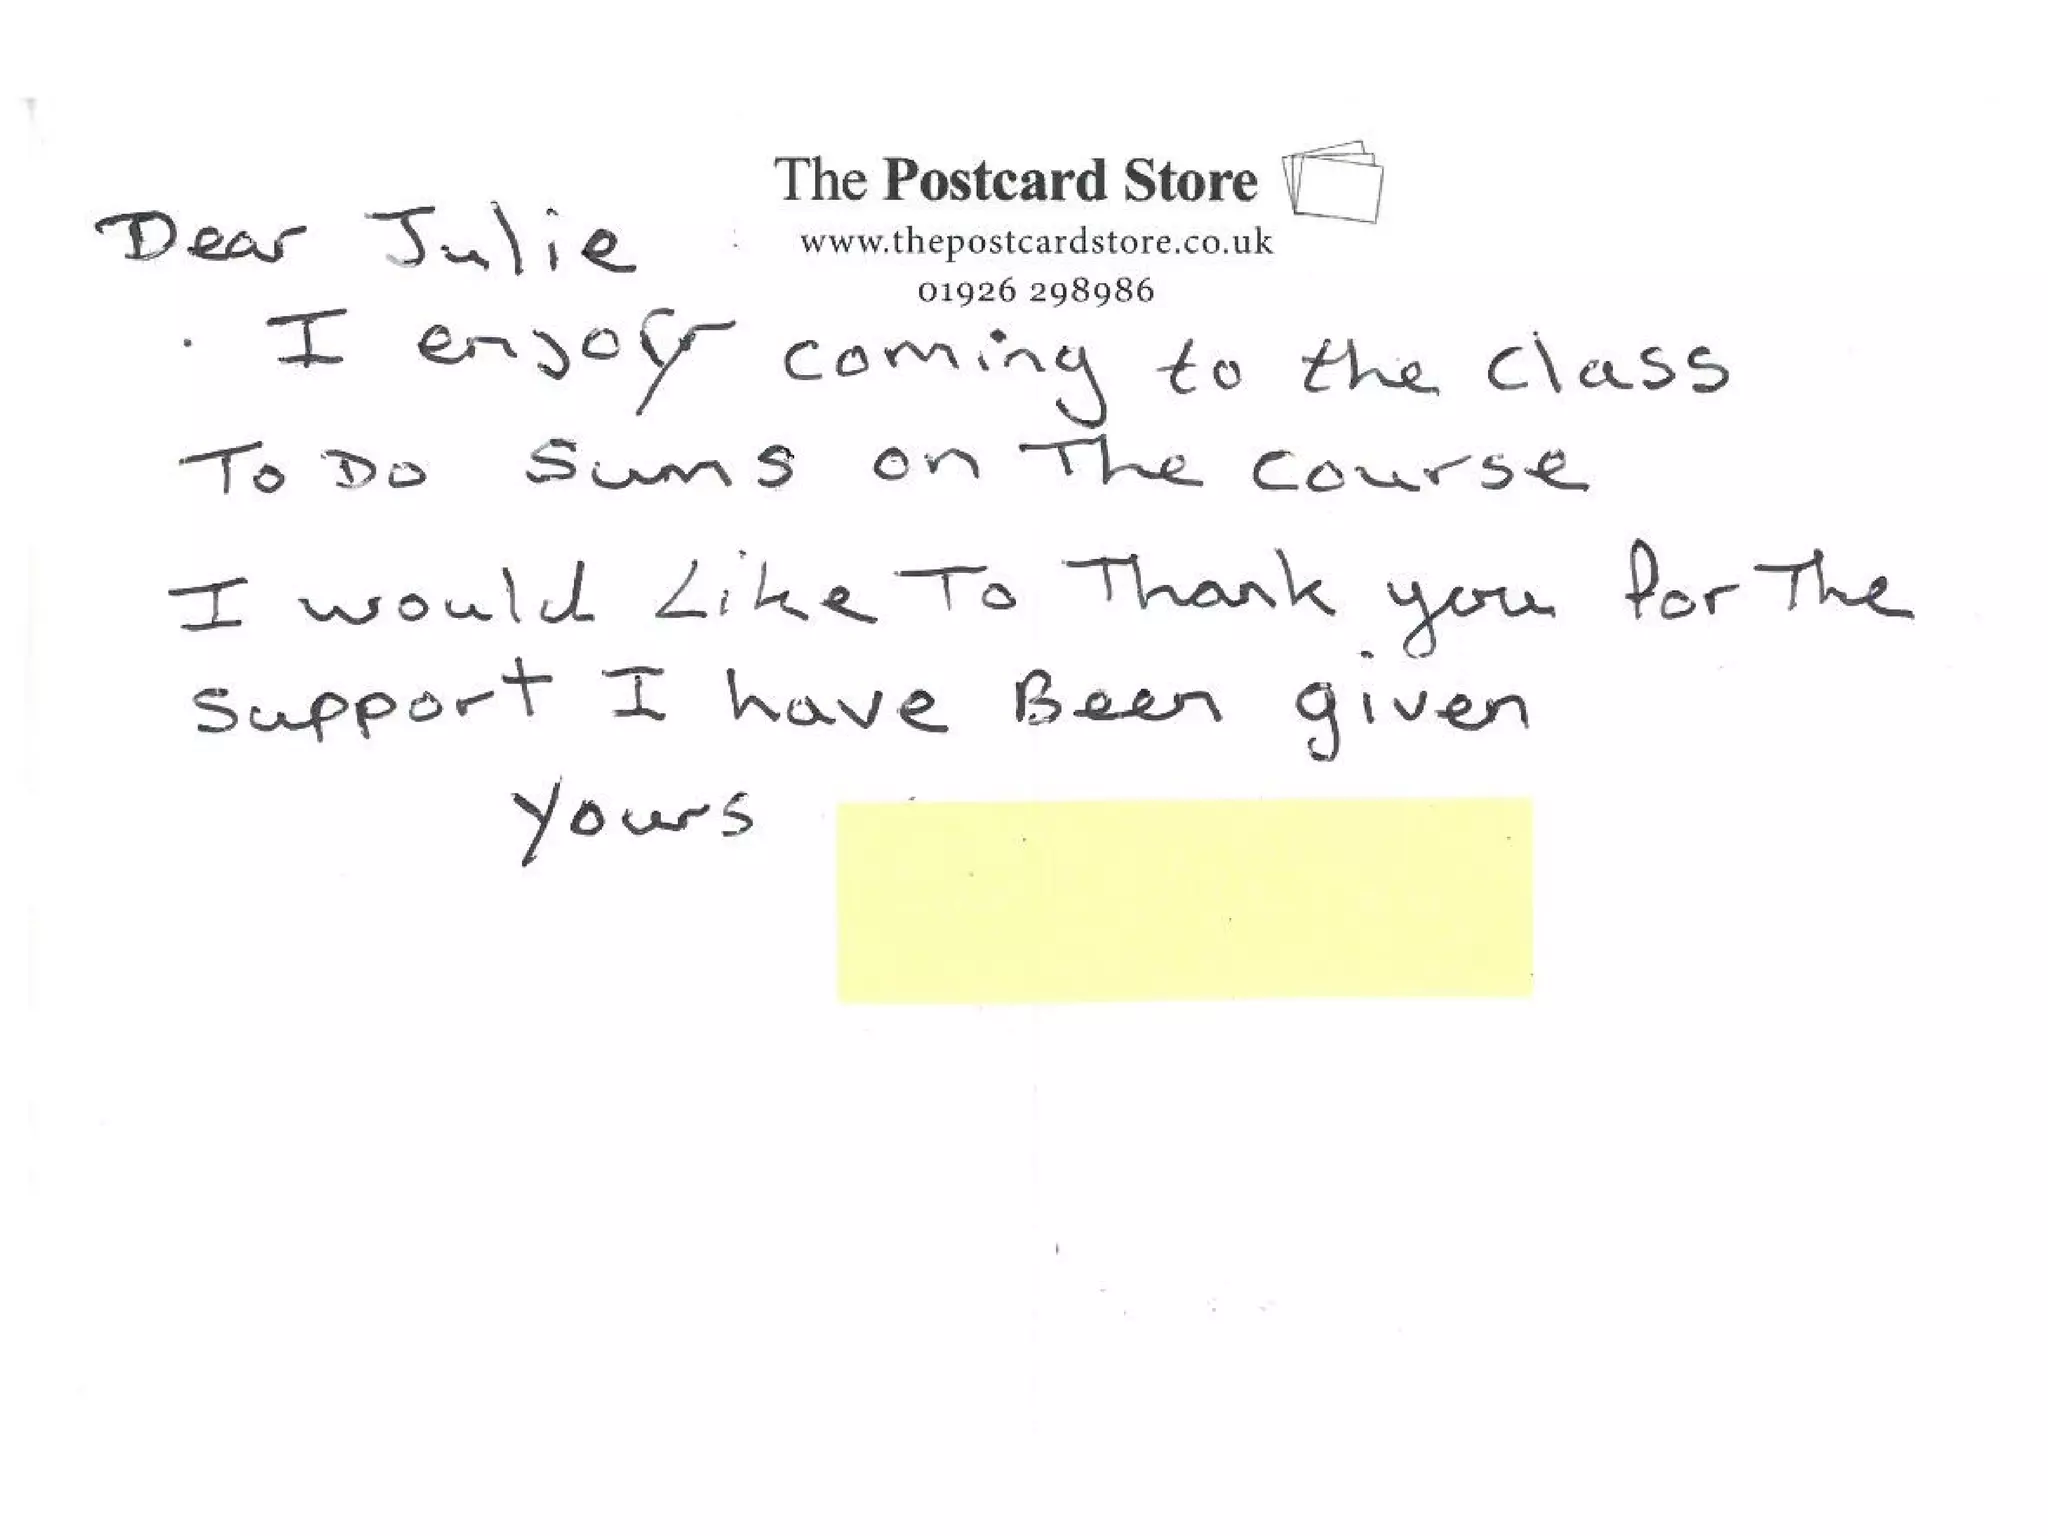 The Postcard Store
www.thepostcardstore.co.uk
01926 298986
Dear Julie
I enjoy coming to the class
To Do Sums on The course
I would Like To Thank you for The
support I have Been given
yours